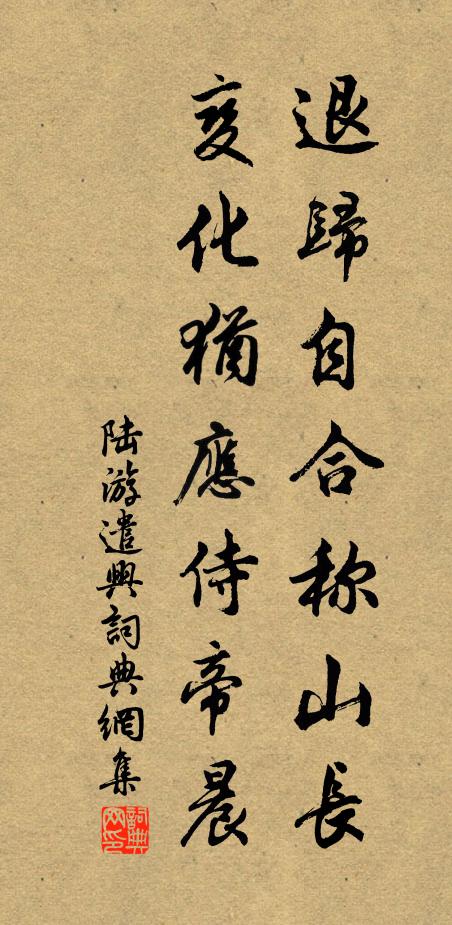 退歸自合称山長
变化猶應侍帝晨
陆游遣興詞典網集
詞典网印